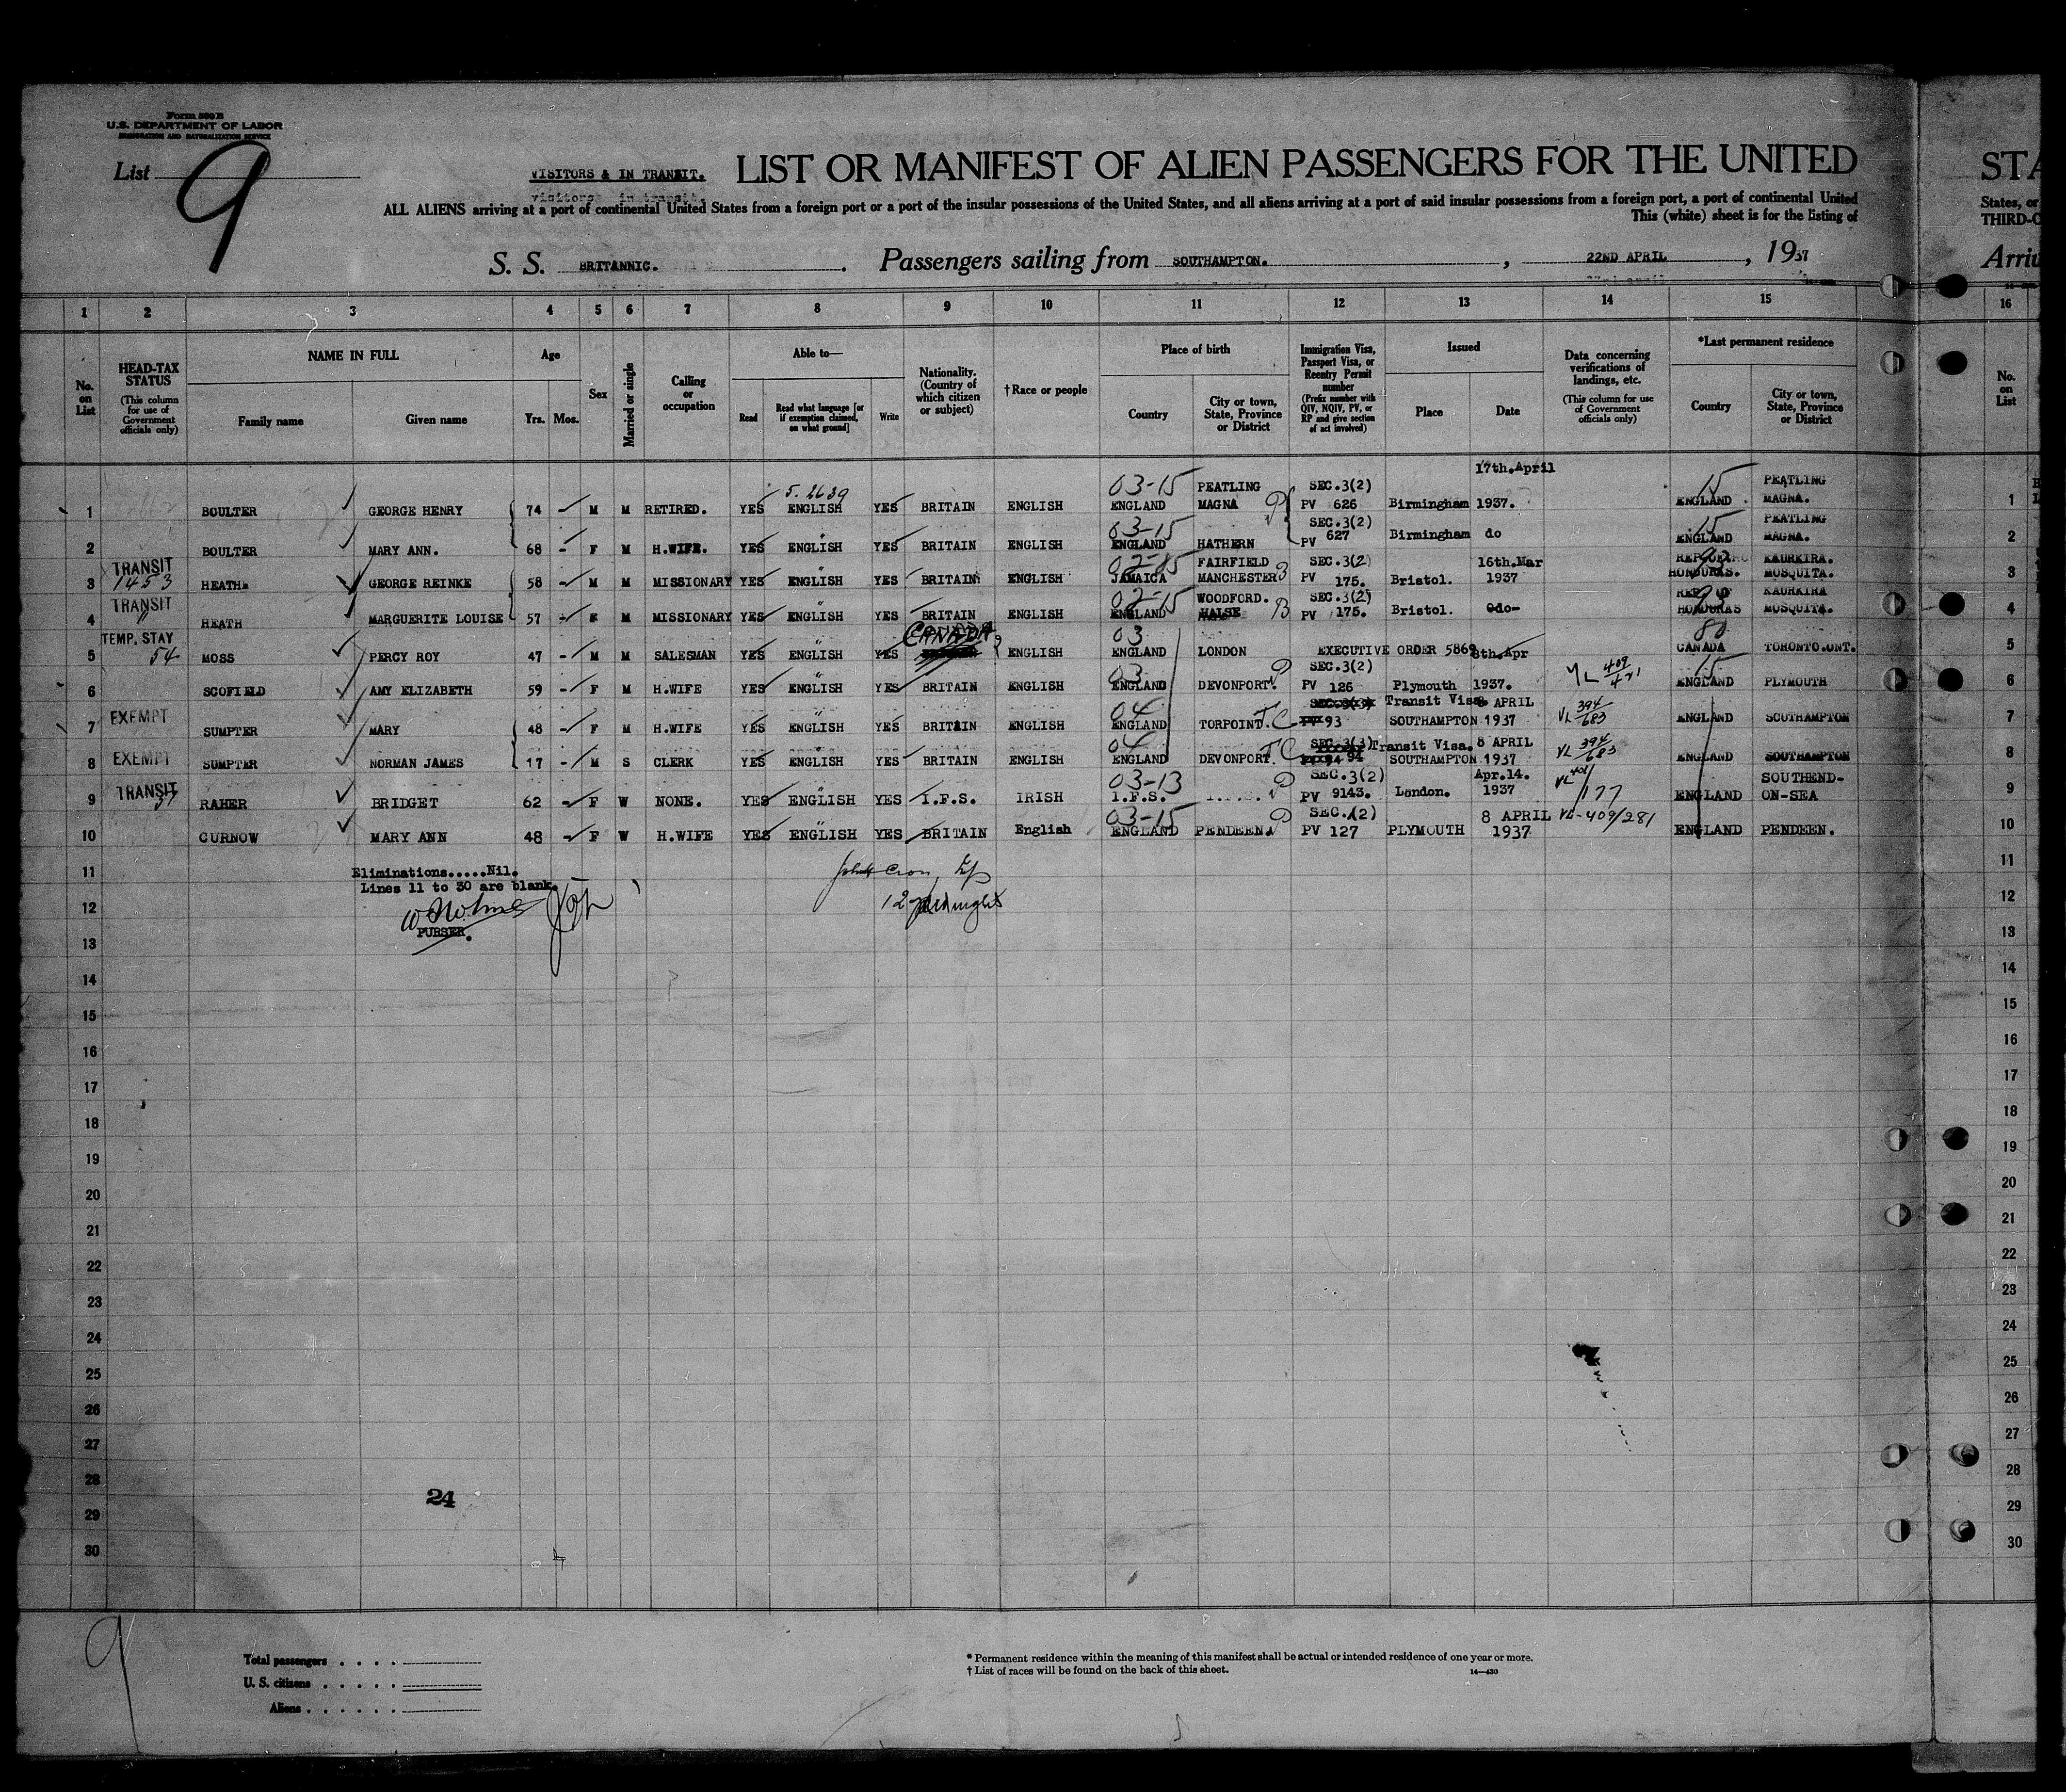 Form 500 B
U.S. DEPARTMENT OF LABOR
IMMIGRATION AND NATURALIZATION SERVICE
List 9
VISITORS & IN TRANSIT.
LIST OR MANIFEST OF ALIEN PASSENGERS FOR THE UNITED STA
ALL ALIENS arriving at a port of continental United States from a foreign port or a port of the insular possessions of the United States, and all aliens arriving at a port of said insular possessions from a foreign port, a port of continental United States, or
This (white) sheet is for the listing of THIRD-C
S. S. BRITANNIC. Passengers sailing from SOUTHAMPTON. , 22ND APRIL , 1937 Arriv
1 2 3 4 5 6 7 8 9 10 11 12 13 14 15 16
No. on List
HEAD-TAX STATUS (This column for use of Government officials only)
NAME IN FULL Family name Given name
Age Yrs. Mos.
Sex
Married or single
Calling or occupation
Able to— Read Read what language [or if exemption claimed, on what ground] Write
Nationality. (Country of which citizen or subject)
†Race or people
Place of birth Country City or town, State, Province or District
Immigration Visa, Passport Visa, or Reentry Permit number (Prefix number with QIV, NQIV, PV, or RP and give section of act involved)
Issued Place Date
Data concerning verifications of landings, etc. (This column for use of Government officials only)
*Last permanent residence Country City or town, State, Province or District
No. on List
1 BOULTER GEORGE HENRY 74 M M RETIRED. YES 5.2639 ENGLISH YES BRITAIN ENGLISH 03-15 ENGLAND PEATLING MAGNA SEC.3(2) PV 626 Birmingham 17th.April 1937. 15 ENGLAND PEATLING MAGNA. 1
2 BOULTER MARY ANN. 68 - F M H.WIFE. YES ENGLISH YES BRITAIN ENGLISH 03-15 ENGLAND HATHERN SEC.3(2) PV 627 Birmingham do 15 ENGLAND PEATLING MAGNA. 2
3 TRANSIT 1453 HEATH GEORGE REINKE 58 - M M MISSIONARY YES ENGLISH YES BRITAIN ENGLISH JAMAICA FAIRFIELD MANCHESTER SEC.3(2) PV 175. Bristol. 16th.Mar 1937 HONDURAS. KAURKIRA. MOSQUITA. 3
4 TRANSIT " HEATH MARGUERITE LOUISE 57 - F M MISSIONARY YES ENGLISH YES BRITAIN ENGLISH 02-15 ENGLAND WOODFORD. HALSE SEC.3(2) PV 175. Bristol. -do- REP OF HONDURAS KAURKIRA MOSQUITA. 4
5 TEMP. STAY 54 MOSS PERCY ROY 47 - M M SALESMAN YES ENGLISH YES CANADA ENGLISH 03 ENGLAND LONDON EXECUTIVE ORDER 5869 80 CANADA TORONTO.ONT. 5
6 SCOFIELD AMY ELIZABETH 59 - F M H.WIFE YES ENGLISH YES BRITAIN ENGLISH 03 ENGLAND DEVONPORT. SEC.3(2) PV 126 Plymouth 8th.Apr 1937. VL 409/421 15 ENGLAND PLYMOUTH 6
7 EXEMPT SUMPTER MARY 48 - F M H.WIFE YES ENGLISH YES BRITAIN ENGLISH 04 ENGLAND TORPOINT. TC 93 Transit Visa SOUTHAMPTON 8 APRIL 1937 VL 394/683 ENGLAND SOUTHAMPTON 7
8 EXEMPT SUMPTER NORMAN JAMES 17 - M S CLERK YES ENGLISH YES BRITAIN ENGLISH 04 ENGLAND DEVONPORT. TC SEC.3(3) 94 Transit Visa. SOUTHAMPTON 8 APRIL 1937 VL 394/683 ENGLAND SOUTHAMPTON 8
9 TRANSIT RAHER BRIDGET 62 - F W NONE. YES ENGLISH YES I.F.S. IRISH 03-13 I.F.S. SEC.3(2) PV 9143. London. Apr.14. 1937 VL 401/177 ENGLAND SOUTHEND-ON-SEA 9
10 CURNOW MARY ANN 48 - F W H.WIFE YES ENGLISH YES BRITAIN English 03-15 ENGLAND PENDEEN. SEC.(2) PV 127 PLYMOUTH 8 APRIL 1937 VL-409/281 ENGLAND PENDEEN. 10
11 Eliminations.....Nil. 11
Lines 11 to 30 are blank.
12 12
PURSER.
13 13
14 14
15 15
16 16
17 17
18 18
19 19
20 20
21 21
22 22
23 23
24 24
25 25
26 26
27 27
28 28
24
29 29
30 30
9
Total passengers . . . .
U. S. citizens . . . . .
Aliens . . . . . .
* Permanent residence within the meaning of this manifest shall be actual or intended residence of one year or more.
† List of races will be found on the back of this sheet. 14—430